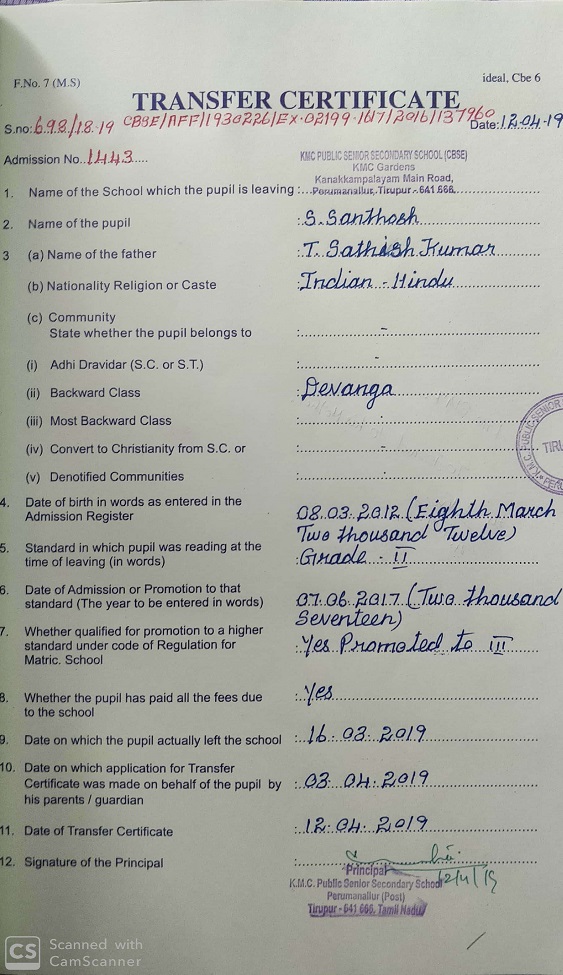 F.No. 7 (M.S)
ideal, Cbe 6
TRANSFER CERTIFICATE
S.no: 698/18-19 CBSE/AFF/1930226/EX-02199-1617/2016/137960 Date: 12.04-19
Admission No. 1443
KMC PUBLIC SENIOR SECONDARY SCHOOL (CBSE)
KMC Gardens
Kanakkampalayam Main Road,
1. Name of the School which the pupil is leaving : Perumanallur, Tirupur - 641 666.
2. Name of the pupil : S. Santhosh
3 (a) Name of the father : T. Sathish Kumar
(b) Nationality Religion or Caste : Indian - Hindu
(c) Community
State whether the pupil belongs to : -
(i) Adhi Dravidar (S.C. or S.T.) : -
(ii) Backward Class : Devanga
(iii) Most Backward Class : -
(iv) Convert to Christianity from S.C. or : -
(v) Denotified Communities : -
K.M.C. PUBLIC SENIOR
TIRU
PERU
4. Date of birth in words as entered in the
Admission Register : 08.03.2012 (Eighth March
Two thousand Twelve)
5. Standard in which pupil was reading at the
time of leaving (in words) : Grade - II
6. Date of Admission or Promotion to that
standard (The year to be entered in words) : 07.06.2017 (Two thousand
Seventeen)
7. Whether qualified for promotion to a higher
standard under code of Regulation for : Yes Promoted to III
Matric. School
8. Whether the pupil has paid all the fees due : Yes
to the school
9. Date on which the pupil actually left the school : 16.03.2019
10. Date on which application for Transfer
Certificate was made on behalf of the pupil by : 03.04.2019
his parents / guardian
11. Date of Transfer Certificate : 12.04.2019
12. Signature of the Principal :
Principal
12/4/19
K.M.C. Public Senior Secondary School
Perumanallur (Post)
Tirupur - 641 666. Tamil Nadu
CS Scanned with
CamScanner